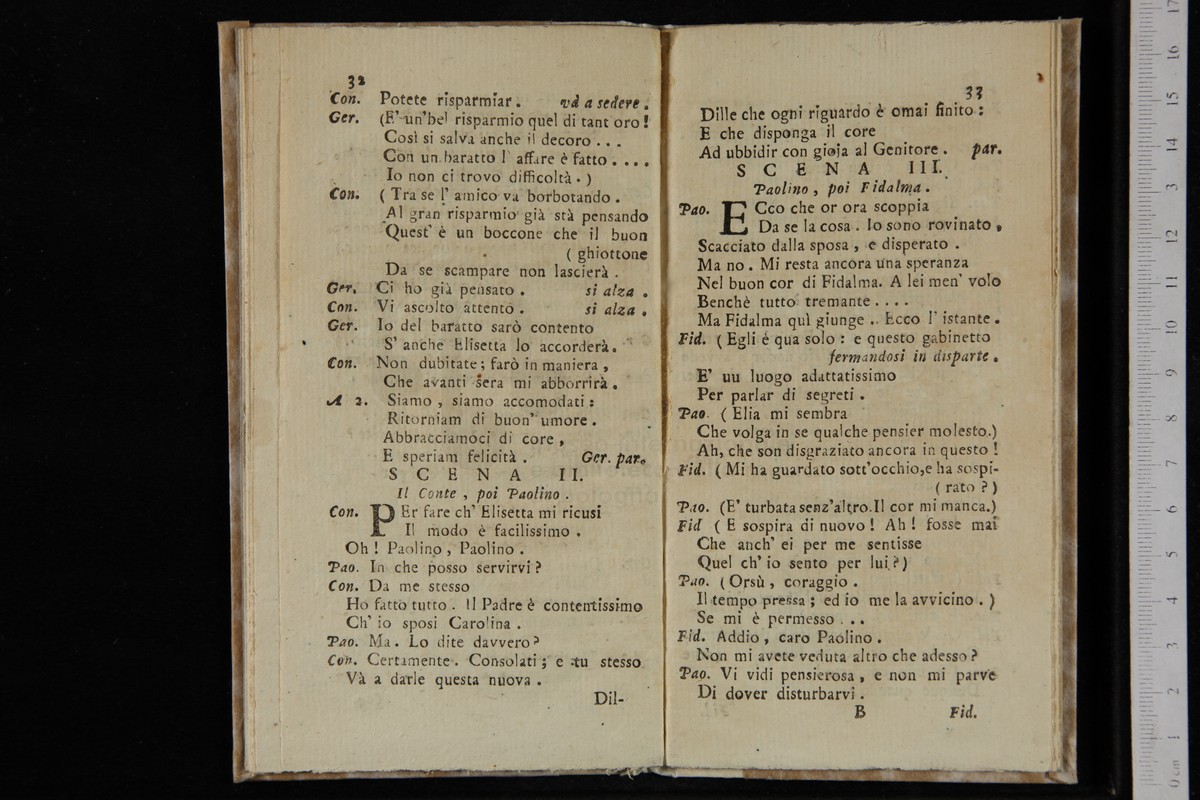 32
Con. Potete risparmiar. và a sedere.
Ger. (E' un'bel risparmio quel di tant oro!
Così si salva anche il decoro ...
Con un baratto l' affare è fatto ....
Io non ci trovo difficoltà.)
Con. (Tra se l' amico va borbotando.
Al gran risparmio già stà pensando
Quest' è un boccone che il buon
(ghiottone
Da se scampare non lascierà.
Ger. Ci ho già pensato. si alza.
Con. Vi ascolto attento. si alza.
Ger. Io del baratto sarò contento
S' anche Elisetta lo accorderà.
Con. Non dubitate; farò in maniera,
Che avanti sera mi abborrirà.
A 2. Siamo, siamo accomodati:
Ritorniam di buon' umore.
Abbracciamoci di core,
E speriam felicità. Ger. par.
SCENA II.
Il Conte, poi Paolino.
Con. PEr fare ch' Elisetta mi ricusi
Il modo è facilissimo.
Oh! Paolino, Paolino.
Pao. In che posso servirvi?
Con. Da me stesso
Ho fatto tutto. Il Padre è contentissimo
Ch' io sposi Carolina.
Pao. Ma. Lo dite davvero?
Con. Certamente. Consolati; e tu stesso
Và a darle questa nuova.
Dil-
33
Dille che ogni riguardo è omai finito:
E che disponga il core
Ad ubbidir con gioja al Genitore. par.
SCENA III.
Paolino, poi Fidalma.
Pao. ECco che or ora scoppia
Da se la cosa. Io sono rovinato,
Scacciato dalla sposa, e disperato.
Ma no. Mi resta ancora una speranza
Nel buon cor di Fidalma. A lei men' volo
Benchè tutto tremante ....
Ma Fidalma quì giunge .. Ecco l' istante.
Fid. (Egli é qua solo: e questo gabinetto
fermandosi in disparte.
E' uu luogo adattatissimo
Per parlar di segreti.
Pao. (Elia mi sembra
Che volga in se qualche pensier molesto.)
Ah, che son disgraziato ancora in questo!
Fid. (Mi ha guardato sott'occhio,e ha sospi-
(rato?)
Pao. (E' turbata senz'altro.Il cor mi manca.)
Fid (E sospira di nuovo! Ah! fosse mai
Che anch' ei per me sentisse
Quel ch' io sento per lui?)
Pao. (Orsù, coraggio.
Il tempo pressa; ed io me la avvicino.)
Se mi è permesso ...
Fid. Addio, caro Paolino.
Non mi avete veduta altro che adesso?
Pao. Vi vidi pensierosa, e non mi parve
Di dover disturbarvi.
B Fid.
0 cm 1 2 3 4 5 6 7 8 9 10 11 12 13 14 15 16 17